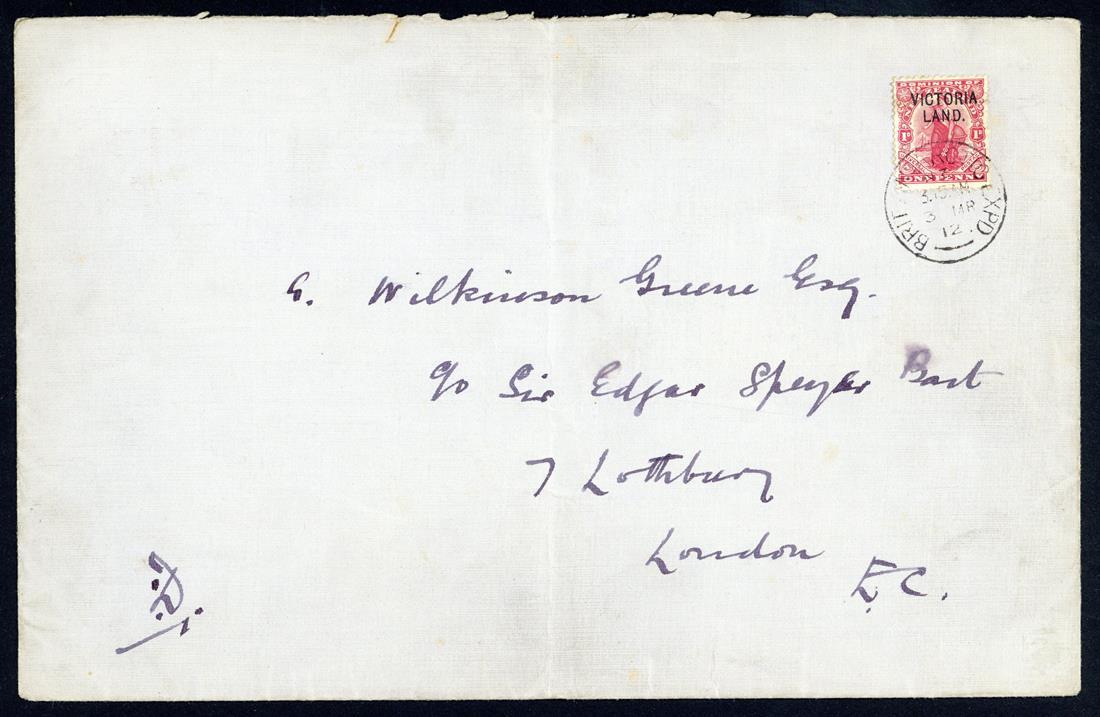 DOMINION OF
VICTORIA
LAND.
1D 1D
ONE PENNY
BRIT. EXPD
3 MAR
12
G. Wilkinson Greene Esq.
c/o Sir Edgar Speyer Bart
7 Lothbury
London
E.C.